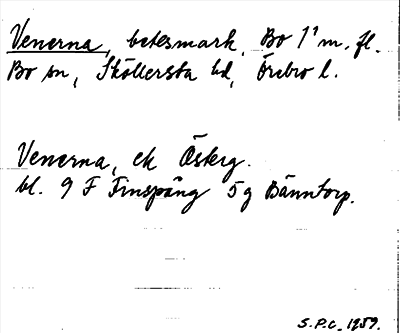 Venerna, betesmark, Bo 1¹ m. fl.
Bo sn, Sköllersta hd, Örebro l.
Venerna, ek Österg.
bl. 9 F Finspång 5 g Bänntorp.
S.P.C. 1959.